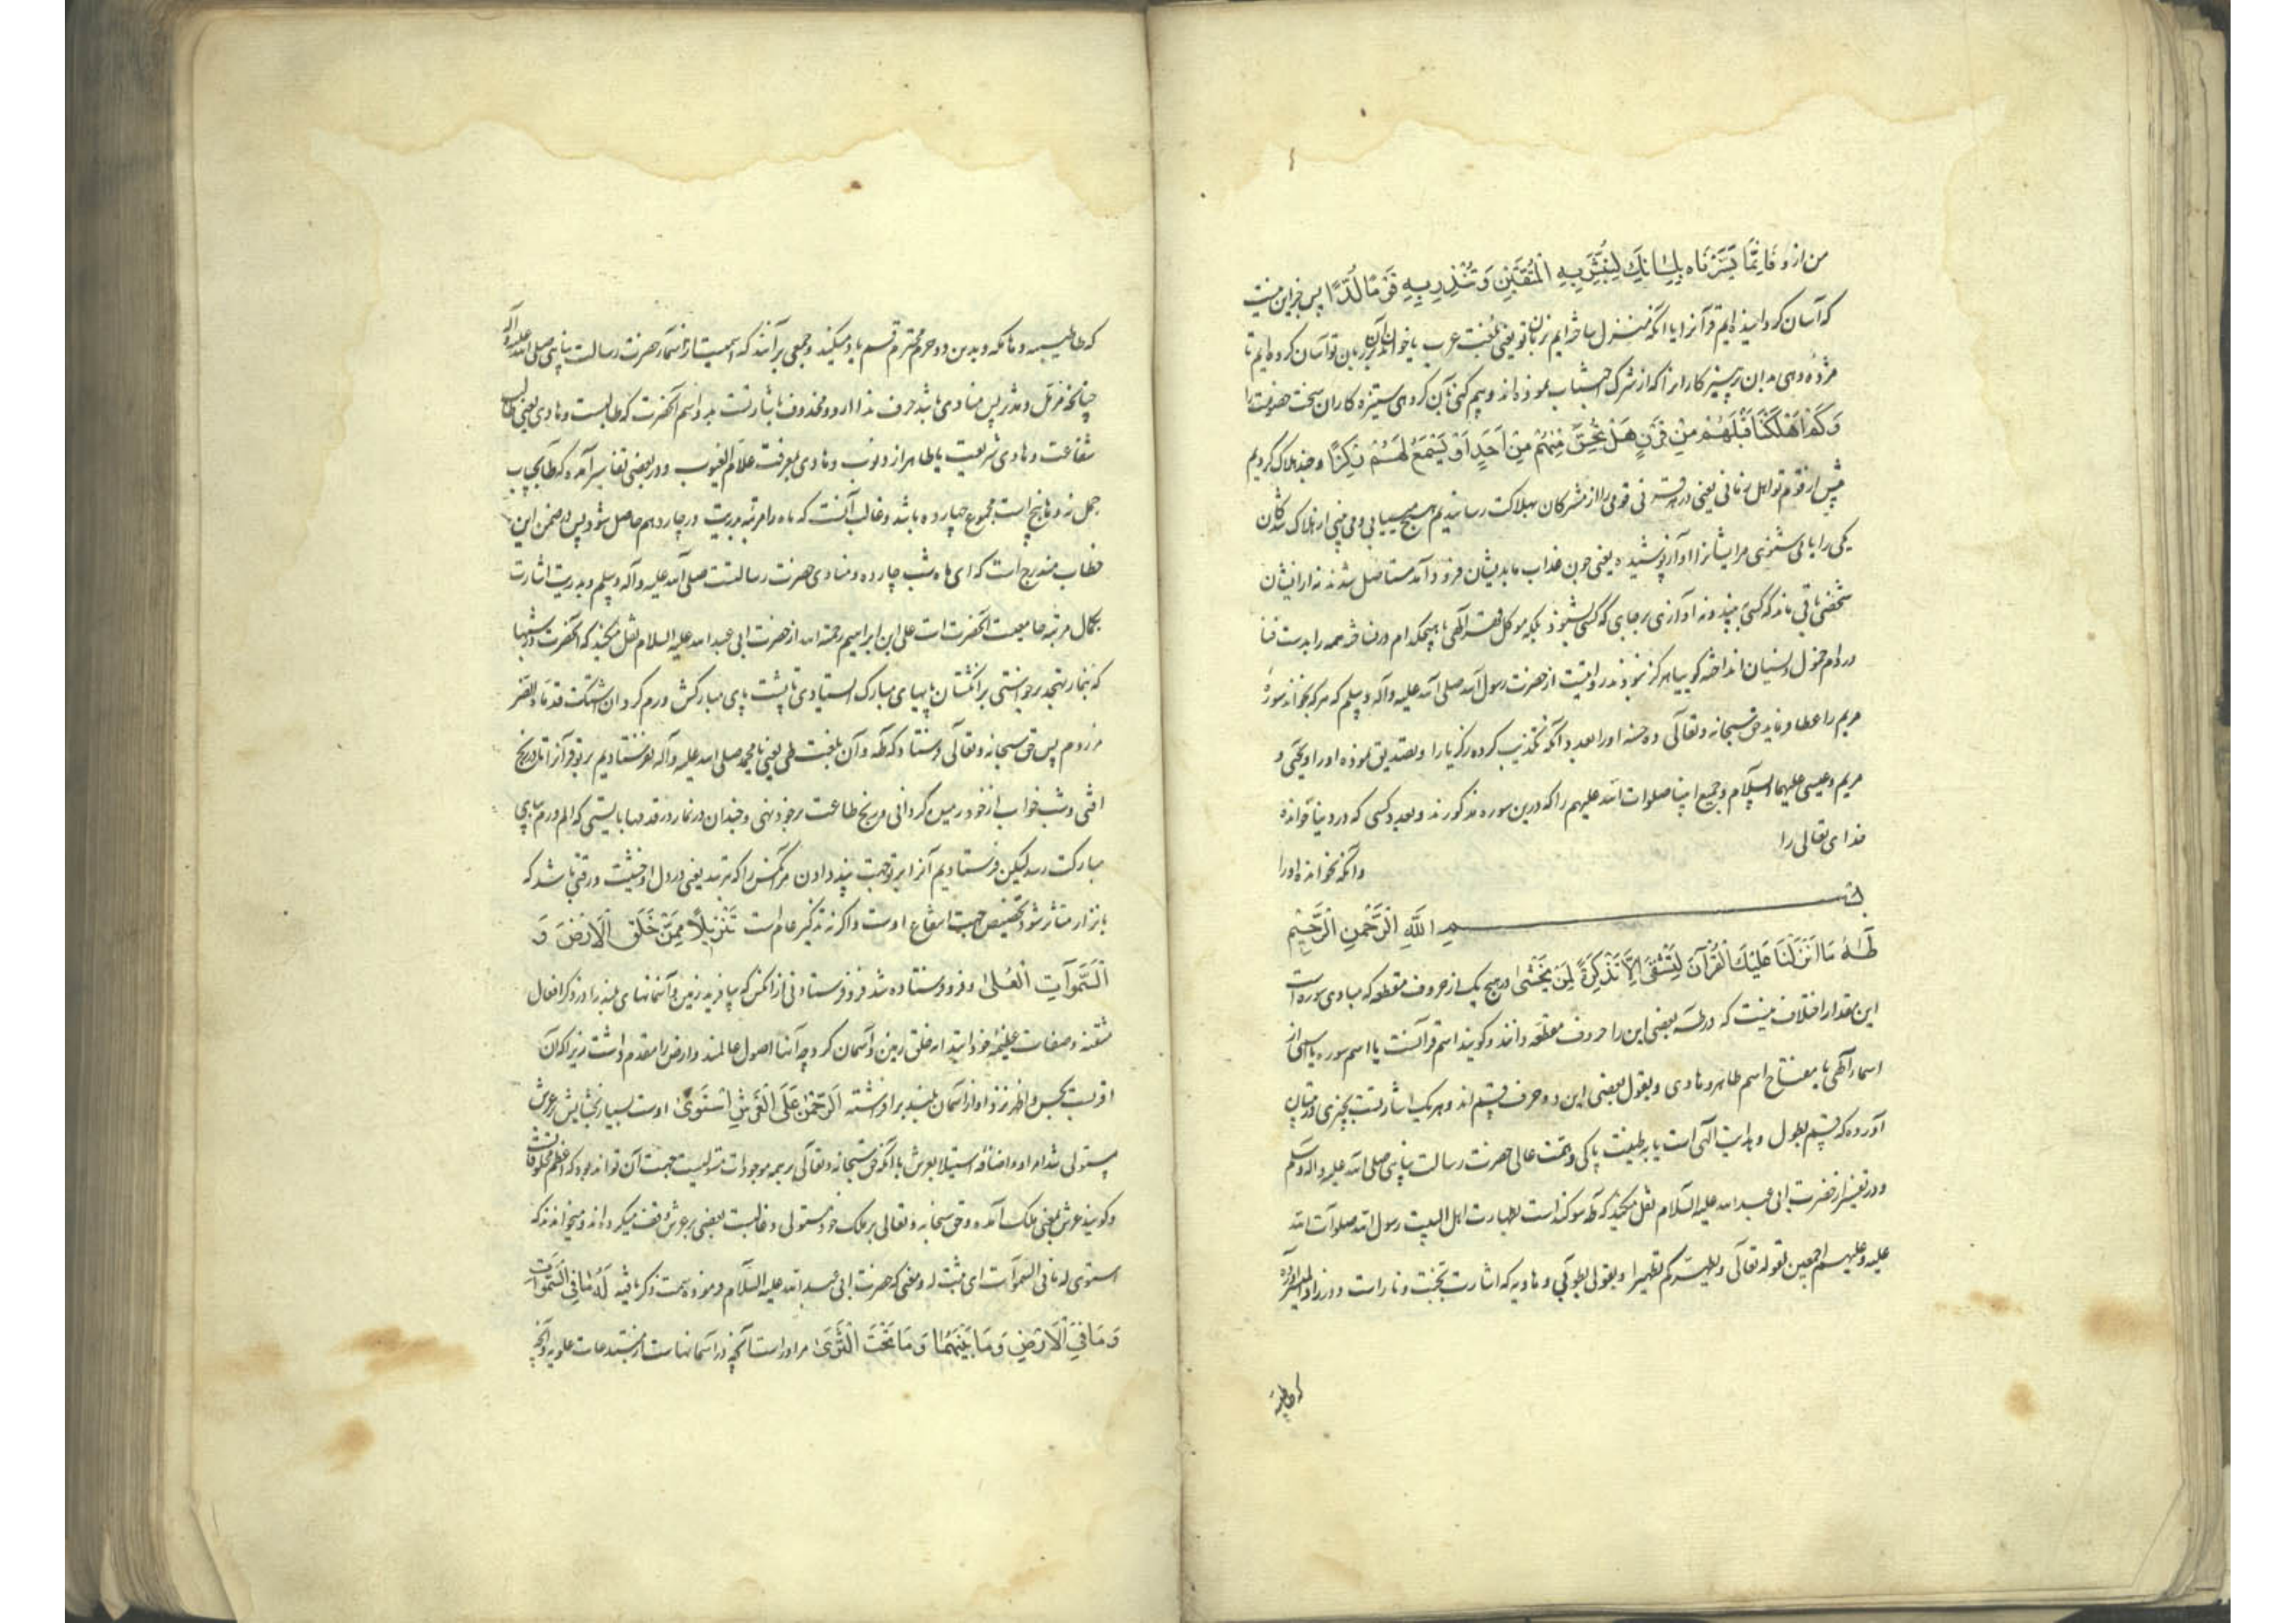 من ازو فَاِنَّمَا يَسَّرْنَاه بِلِسَانِكَ لِتُبَشِّرَ بِهِ الْمُتَّقِيْنَ وَتُنْذِرَ بِهِ قَوْمًا لُدًّا پس جز این نیست
که آسان کردانیده ایم قرآنرا یا آنکه منزل ساخته ایم بزبان تو یعنی بلغت عرب یا خواندن آن بر زبان تو آسان کرده ایم تا
مژده دهی بدان پرهیزکارانرا که از شرک اجتناب نموده اند و بیم کنی بآن کروهی ستیزه کاران سخت خصومت را
وَكَمْ اَهْلَكْنَا قَبْلَهُمْ مِنْ قَرْنٍ هَلْ تُحِسُّ مِنْهُمْ مِنْ اَحَدٍ اَوْ تَسْمَعُ لَهُمْ رِكْزًا و چند هلاک کردیم
پیش از قوم تو اهل زمانی یعنی در هر قرنی قومی را از مشرکان بهلاکت رسانیدیم هیچ مییابی و می بینی از هلاک شدکان
یکی را یا می شنوی مر ایشانرا آواز پوشیده یعنی چون عذاب ما بدیشان فرود آمد مستاصل شدند نه از ایشان
شخصی باقی ماند که کسی بیند و نه آوازی بر جای که کسی بشنود بلکه موکل قهر الهی با هیچکدام در نساخته همه را بدست فنا
در دام خمول و نسیان انداخته کوییا هرکز نبودند روایتست از حضرت رسول الله صلی الله علیه وآله وسلم که هرکه بخواند سورهٔ
مریم را عطا فرماید حق سبحانه وتعالی ده حسنه او را بعدد آنکه تکذیب کرده زکریا را و تصدیق نموده او را و یحیی و
مریم و عیسی علیهما السلام و جمیع انبیا صلوات الله علیهم را که درین سوره مذکورند و بعدد کسی که در دنیا خوانده
خدای تعالی را
وانکه نخوانده او را
بســـم اللّٰهِ الرَّحْمٰنِ الرَّحِيْمِ
طٰهٰ مَا اَنْزَلْنَا عَلَيْكَ الْقُرْآنَ لِتَشْقٰى اِلَّا تَذْكِرَةً لِمَنْ يَخْشٰى در هیچ یک از حروف مقطعه که مبادی سوره است
این مقدار اختلاف نیست که در طه بعضی این را حروف مقطعه دانند و کویند اسم قرآنست یا اسم سوره یا اسمی از
اسماء الهی یا مفتاح اسم طاهر و هادی و بقول بعضی این دو حرف قسم اند و هر یک اشارتست بچیزی در تبیان
آورده که قسم بطول و هدایت الهی است یا بطینت پاکی و همت عالی حضرت رسالت پناهی صلی الله علیه وآله وسلم
و در تفسیر از حضرت ابی عبدالله علیه السلام نقل میکند که طه سوکند است بطهارت اهل البیت رسول الله صلوات الله
علیه وعلیهم اجمعین لقوله تعالی ویطهرکم تطهیرا و بقولی بطوبی و هاویه که اشارت بجنت و نار است و در زاد المسیر آورده
که طایبه
که طا طیبه و ها مکه و بدین دو حرم محترم قسم یاد میکند و جمعی برآنند که اسمیست از اسماء حضرت رسالت پناهی صلی الله علیه وآله
چنانچه مزمل و مدثر پس منادی باشد حرف ندا ازو محذوف یا اشارتست بدو اسم آنحضرت که طالبست و هادی یعنی طالب
شفاعت و هادی شریعت یا طاهر از ذنوب و هادی بمعرفت علام الغیوب و در بعضی تفاسیر آمده که طا بحساب
جمل نه و ها پنج است مجموع چهارده باشد و غالب آنست که ماه را مرتبه بدریت در چاردهم حاصل شود پس در ضمن این
خطاب مندرج است که ای ماه شب چارده و منادی حضرت رسالتست صلی الله علیه وآله وسلم و بدریت اشارت
بکمال مرتبه جامعیت آنحضرت است علی ابن ابراهیم رحمة الله از حضرت ابی عبدالله علیه السلام نقل میکند که آنحضرت در شبها
که بنماز تهجد برخواستی بر انکشتان پایهای مبارک ایستادی تا پشت پای مبارکش ورم کرد
مردم پس حق سبحانه وتعالی فرستاد که طه و آن بلغت طی یعنی یا محمد صلی الله علیه وآله نفرستادیم بر تو قرآنرا تا در رنج
افتی و شب خواب از خود زمیل کردانی و رنج طاعت بر خود نهی و چندان در نماز در قدمها بایستی که الم ورم بپای
مبارکت رسد لیکن فرستادیم آنرا بر تو جهت پند دادن مر آنکس را که ترسد یعنی در دل او خشیت و رقتی باشد که
بانذار متاثر شود تخصیص جهت انتفاع اوست و اکر نه تذکیر عام است تَنْزِيْلًا مِمَّنْ خَلَقَ الْاَرْضَ وَ
السَّمٰوَاتِ الْعُلٰى و فرو فرستاده شد فرو فرستادنی از آنکس که بیافرید زمین و آسمانهای بلند را در ذکر افعال
متقنه و صفات عظیمه خود ابتدا از خلق زمین و آسمان کرد چه آنها اصول عالمند و ارض را مقدم داشت زیرا که آن
اقربست بحس و اظهر نزد او از آسمان بلند برافراشته اَلرَّحْمٰنُ عَلَى الْعَرْشِ اسْتَوٰى اوست بسیار بخشایش بر عرش
مستولی شد امر او و اضافهٔ استیلا بعرش با آنکه حق سبحانه وتعالی بر همه موجودات مستولیست جهت آن تواند بود که اعظم مخلوقاتست
و کویند عرش بمعنی ملک آمده و حق سبحانه وتعالی بر ملک خود مستولی و غالبست بعضی بر عرش وقف میکرده اند و میخوانند که
استوی له مافی السموات ای یثبت له و معنی که حضرت ابی عبدالله علیه السلام فرموده سمت ذکر یافته لَهُ مَا فِي السَّمٰوَاتِ
وَمَا فِي الْاَرْضِ وَمَا بَيْنَهُمَا وَمَا تَحْتَ الثَّرٰى مر او راست آنچه در آسمانهاست از مبتدعات علویه و آنچه